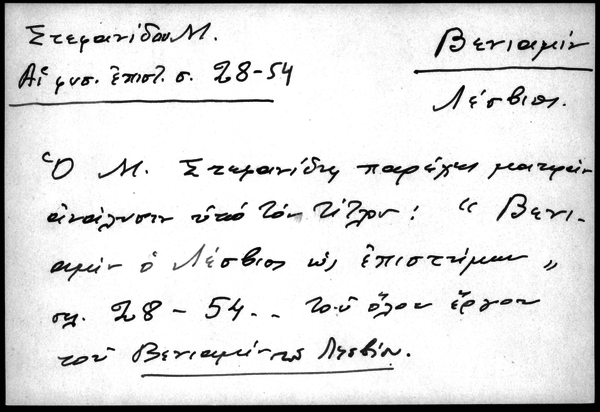 Στεφανίδου Μ.
Αἱ φυσ. ἐπιστ. σ. 28-54
Βενιαμίν
Λέσβιος.
Ὁ Μ. Στεφανίδης παρέχει μακρὰν
ἀνάλυσιν ὑπὸ τὸν τίτλον: “ Βενι-
αμὶν ὁ Λέσβιος ὡς ἐπιστήμων „
σελ. 28 - 54 .. τοῦ ὅλου ἔργου
τοῦ Βενιαμὶν τοῦ Λεσβίου.